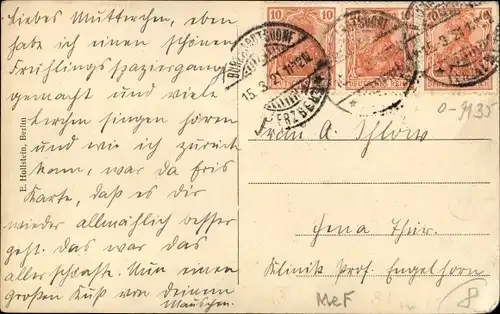 Liebes Mutterchen, eben
habe ich einen schönen
Frühlingsspaziergang
gemacht und viele
Lerchen singen hören
und wie ich zurück
kam, war da Eine
Karte, daß es dir
wieder allmählich besser
geht. Das war das
allerschönste. Nun einen
großen Kuß von Deinem
Mauschen.
E. Hollstein, Berlin
10
10
15.3.21
ERZGEB
O-9135
Frau A. Thlow
Jena Thür.
Klinik Prof. Engelhorn
MeF
8